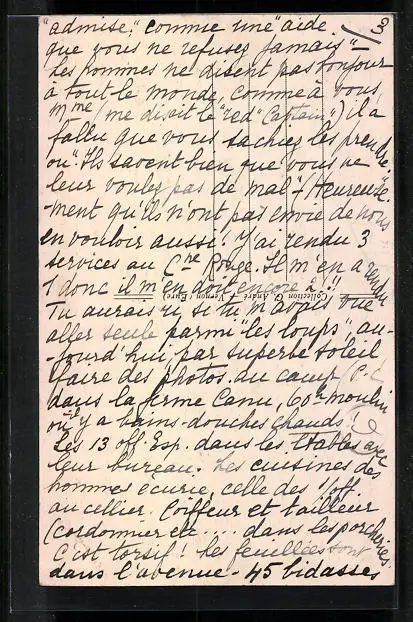 3
"admise," comme une "aide
que vous ne refusez jamais" –
Les hommes ne disent pas toujour
à tout le monde, comme à vous,
Mme (me disait le "red "Captain") il a
fallu que vous sachiez les prendre
ou". Ils savent bien que vous ne
leur voulez pas de mal – (Heureuse-
-ment qu'ils n'ont pas envie de nous
en vouloir aussi! J'ai rendu 3
services au Cne Rouge. Il m'en a rendu
1 donc il m'en doit encore 2!!
Collection G. André, Vernon (Eure)
Tu aurais ri, si tu m'avais vue
aller seule parmi "les loups", au-
-jourd'hui, par superbe soleil
faire des photos du camp (P.C
dans la ferme Canu, 60 moulin
où il y a bains-douches chauds!
Les 13 off. Esp. dans les étables avec
leur bureau. Les cuisines des
hommes écurie, celle des off.
au cellier. Coiffeur et tailleur
(cordonnier etc... dans les porcheries.
C'est torsif! Les feuillées sont
dans l'avenue – 45 bidasses